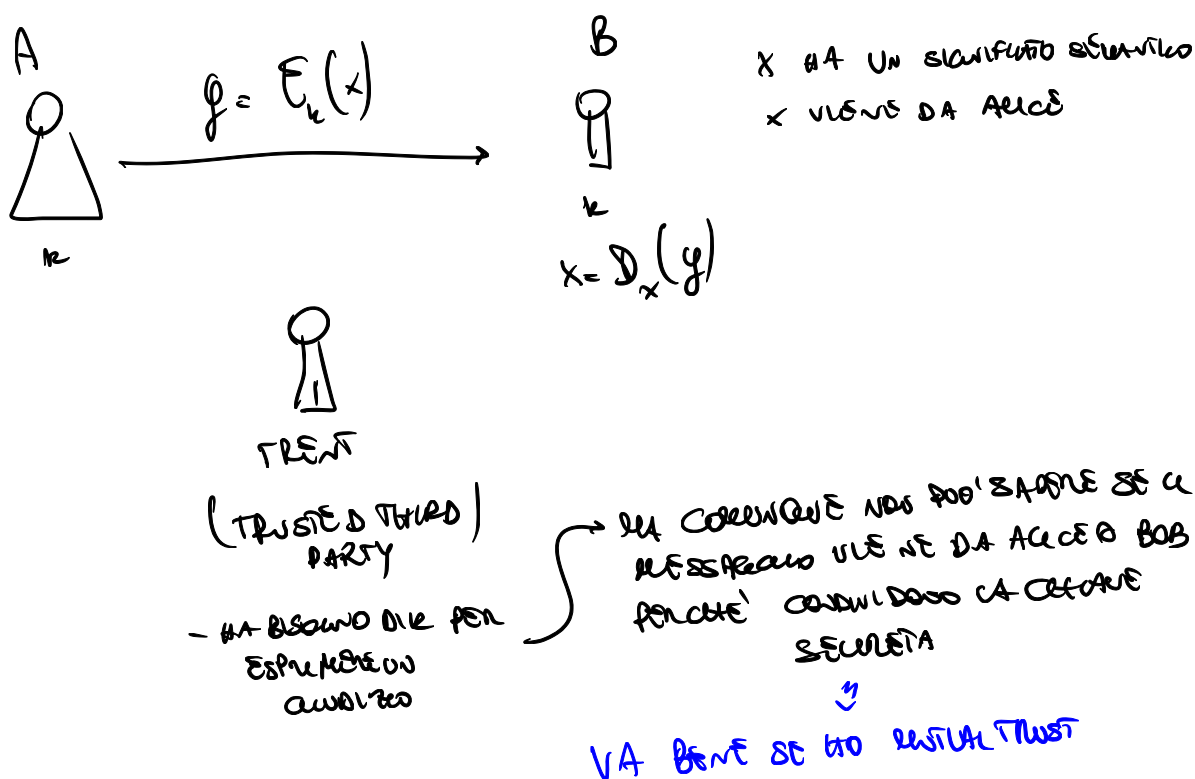 A
B
y = E_k(x)
x HA UN SIGNIFICATO SEMANTICO
x VIENE DA ALICE
k
k
x = D_x(y)
TRENT
(TRUSTED THIRD
PARTY)
- HA BISOGNO DI K PER
ESPRIMERE UN
GIUDIZIO
MA COMUNQUE NON PUO' SAPERE SE IL
MESSAGGIO VIENE DA ALICE O BOB
PERCHE' CONDIVIDONO LA CHIAVE
SEGRETA
VA BENE SE HO MUTUAL TRUST